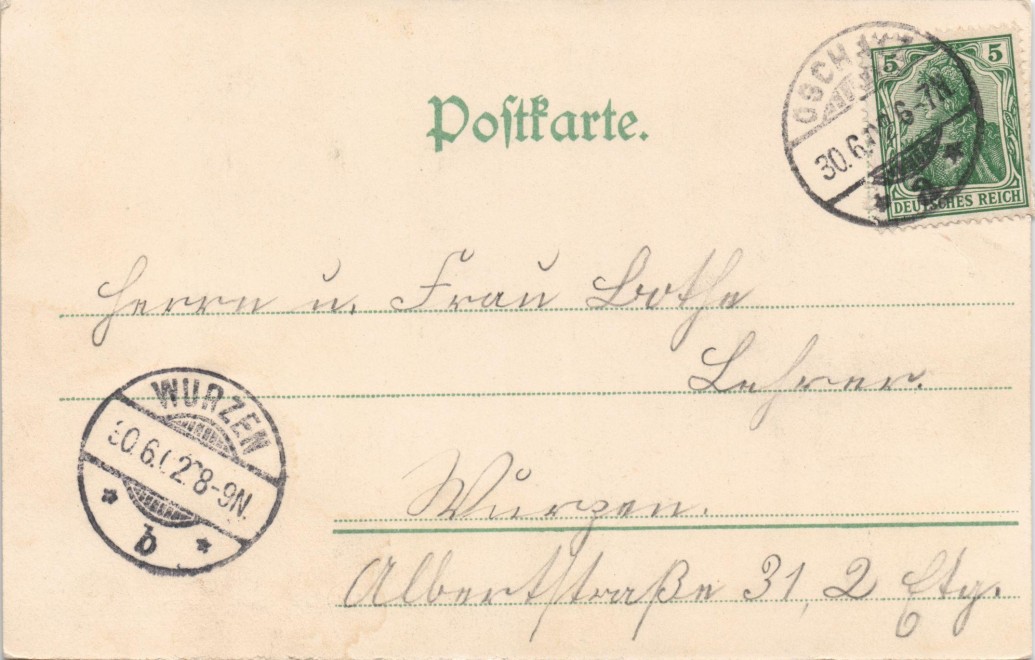 Postkarte.
OSCHATZ
30.6.02 6-7N
a
5 5
DEUTSCHES REICH
Herrn u. Frau Bothe
Lehrer.
WURZEN
30.6.02 8-9N.
b
Wurzen.
Albertstraße 31, 2 Etg.